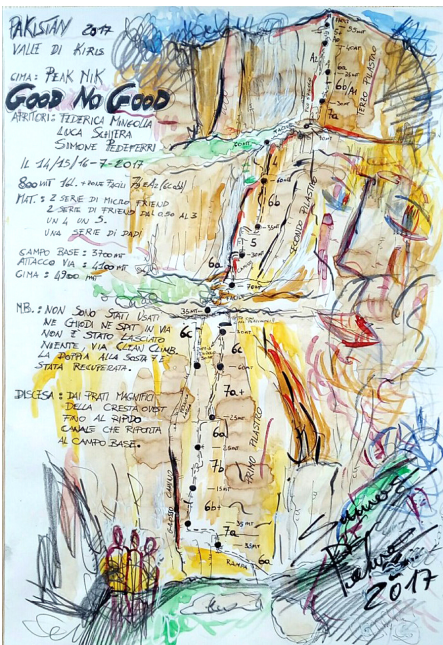 PAKISTAN 2017
VALLE DI KIRIS
CIMA: PEAK NIK
GOOD NO GOOD
APRITORI: FEDERICA MINGOLLA
LUCA SCHIERA
SIMONE PEDEFERRI
IL 14/15/16-7-2017
800 MT
MAT.: 2 SERIE DI MICRO FRIEND
2 SERIE DI FRIEND DAL 0.50 AL 3
UN 4 UN 5.
UNA SERIE DI DADI
CAMPO BASE: 3700 MT
ATTACCO VIA: 4100 MT
CIMA: 4900 MT
N.B.: NON SONO STATI USATI
NE CHIODI NE SPIT IN VIA
NON È STATO LASCIATO
NIENTE, VIA CLEAN CLIMB.
LA DOPPIA ALLA SOSTA 7 È
STATA RECUPERATA.
DISCESA: DAI PRATI MAGNIFICI
DELLA CRESTA OVEST
FINO AL RIPIDO
CANALE CHE RIPORTA
AL CAMPO BASE.
TERZO PILASTRO
6a
6b/A1
7a
SECONDO PILASTRO
6b
5
6a
35MT
6c
6c
7a+
7b
PRIMO PILASTRO
GROSSO CAMINO
6b+
7a
35MT
RAMPA
6a
2017